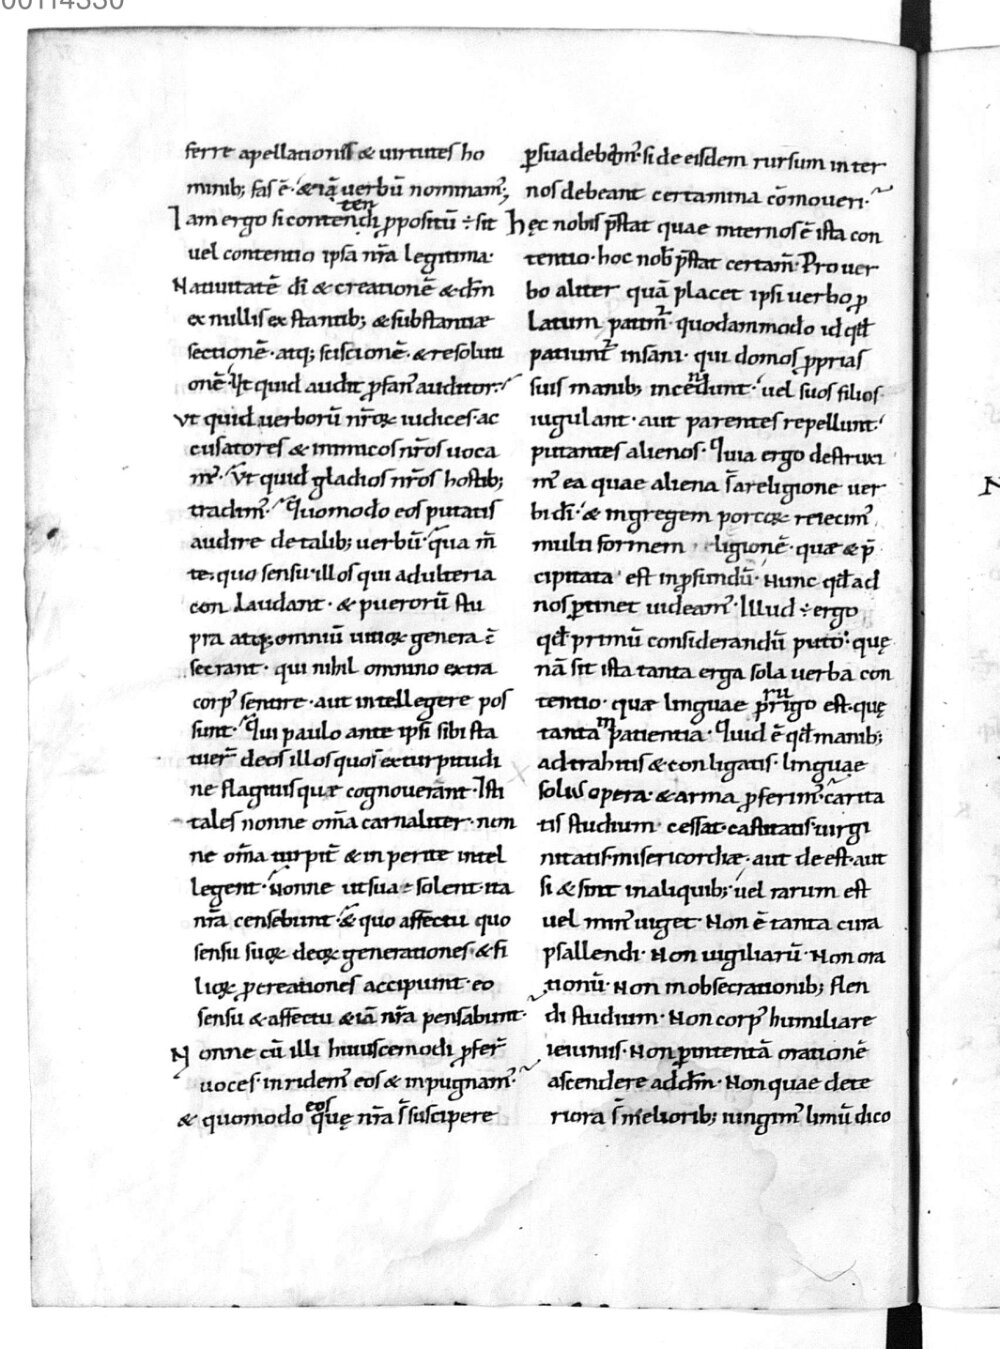 00114330
ferre apellationis & uirtutes ho
minib; fas ē· & iā uerbū nominam̄;
Iam ergo si contendi ꝓpositū ÷ sit
ten
uel contentio ipsa nr̄a legitima·
Natiuitatē dī & creationē & dm̄
ex nullis exstantib; & substantiæ
sectionē· atq; scissionē· & resoluti
onē· Ut quid audit ꝓfan᾽ auditor·
Ut quid uerborū nr̄oꝝ iudices· ac
cusatores & inimicos nr̄os uoca
m᾽· Ut quid gladios nr̄os hostib;
tradim᾽· Quomodo eos putatis
audire de talib; uerbū· qua m̄
te· quo sensu· illos qui adulteria
con laudant· & puerorū stu
pra atq; omniū uitioꝝ genera c̄
secrant· qui nihil omnino extra
corp᾽ sentire· aut intellegere pos
sunt· Qui paulo ante ipsi sibi sta
tuer̄ deos illos quos ex turpitudi
ne flagitiis quæ cognouerant· Isti
tales nonne om̄a carnaliter· non
ne om̄a turpit̄ & inperite intel
legent· Nonne ut sua ÷ solent· ita
nr̄a censebunt· & quo affectu quo
sensu suoꝝ deoꝝ generationes· & fi
lioꝝ ꝓcreationes accipiunt· eo
sensu & affectu & iā nr̄a pensabunt·
Nonne cū illi huiuscemodi ꝓfer̄
uoces· inridem᾽ eos & inpugnam᾽·
& quomodo quę nr̄a s̄ suscipere
eos
ꝑsuadebim᾽· si de eisdem rursum inter
nos debeant certamina cōmoueri·
hęc nobis p̄stat quae inter nos ē ista con
tentio· hoc nob̄ p̄stat certam̄· Pro uer
bo aliter quā placet ipsi uerbo ꝓ
latum patim᾽· quodammodo id qđ
patiunt᾽ insani· qui domos ꝓprias
suis manib; incedunt· uel suos filios
n
iugulant· aut parentes repellunt·
putantes alienos· Quia ergo destruxi
m᾽ ea quae aliena s̄ a religione uer
bi dī· & in gregem porcoꝝ reiecim᾽
multi formem religionē· quæ & p̄
cipitata est in ꝓfundū· Nunc qđ ad
nos ꝑtinet uideam᾽· Illud ÷ ergo
qđ primū considerandū puto· quę
nā sit ista tanta erga sola uerba con
tentio· quæ linguae p̄rigo est· quę
ru
tanta patientia· Quid ē qđ manib;
m
adtrahitis & conligatis· linguae
solus opera· & arma ꝓferim᾽· carita
tis studium· cessat· castitatis· uirgi
nitatis· misericordiæ· aut deest· aut
si & sint in aliquib; uel rarum est
uel min᾽ uiget· Non ē tanta cura
psallendi· Non uigiliarū· Non ora
tionū· Non in obsecrationib; flen
di studium· Non corp᾽ humiliare
ieiuniis· Non ꝑ intentā orationē
ascendere ad dm̄· Non quae dete
riora s̄ meliorib; iungim᾽ limū dico